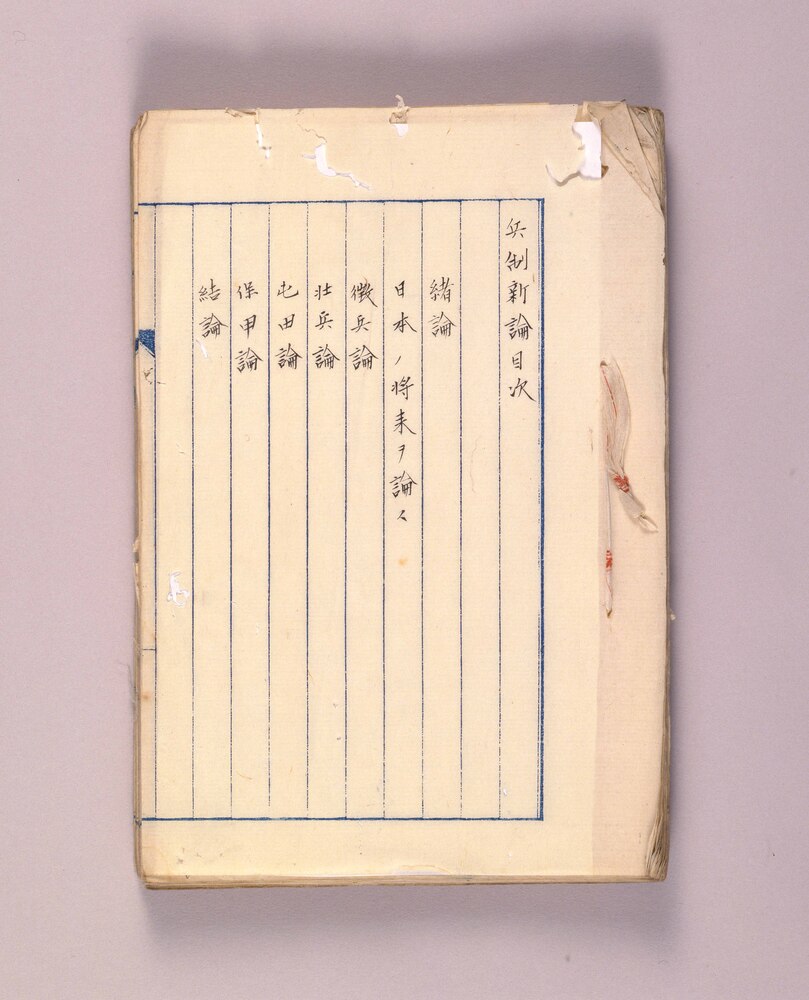 兵制新論目次
緒論
日本ノ将来ヲ論ス
徴兵論
壮兵論
屯田論
保甲論
結論